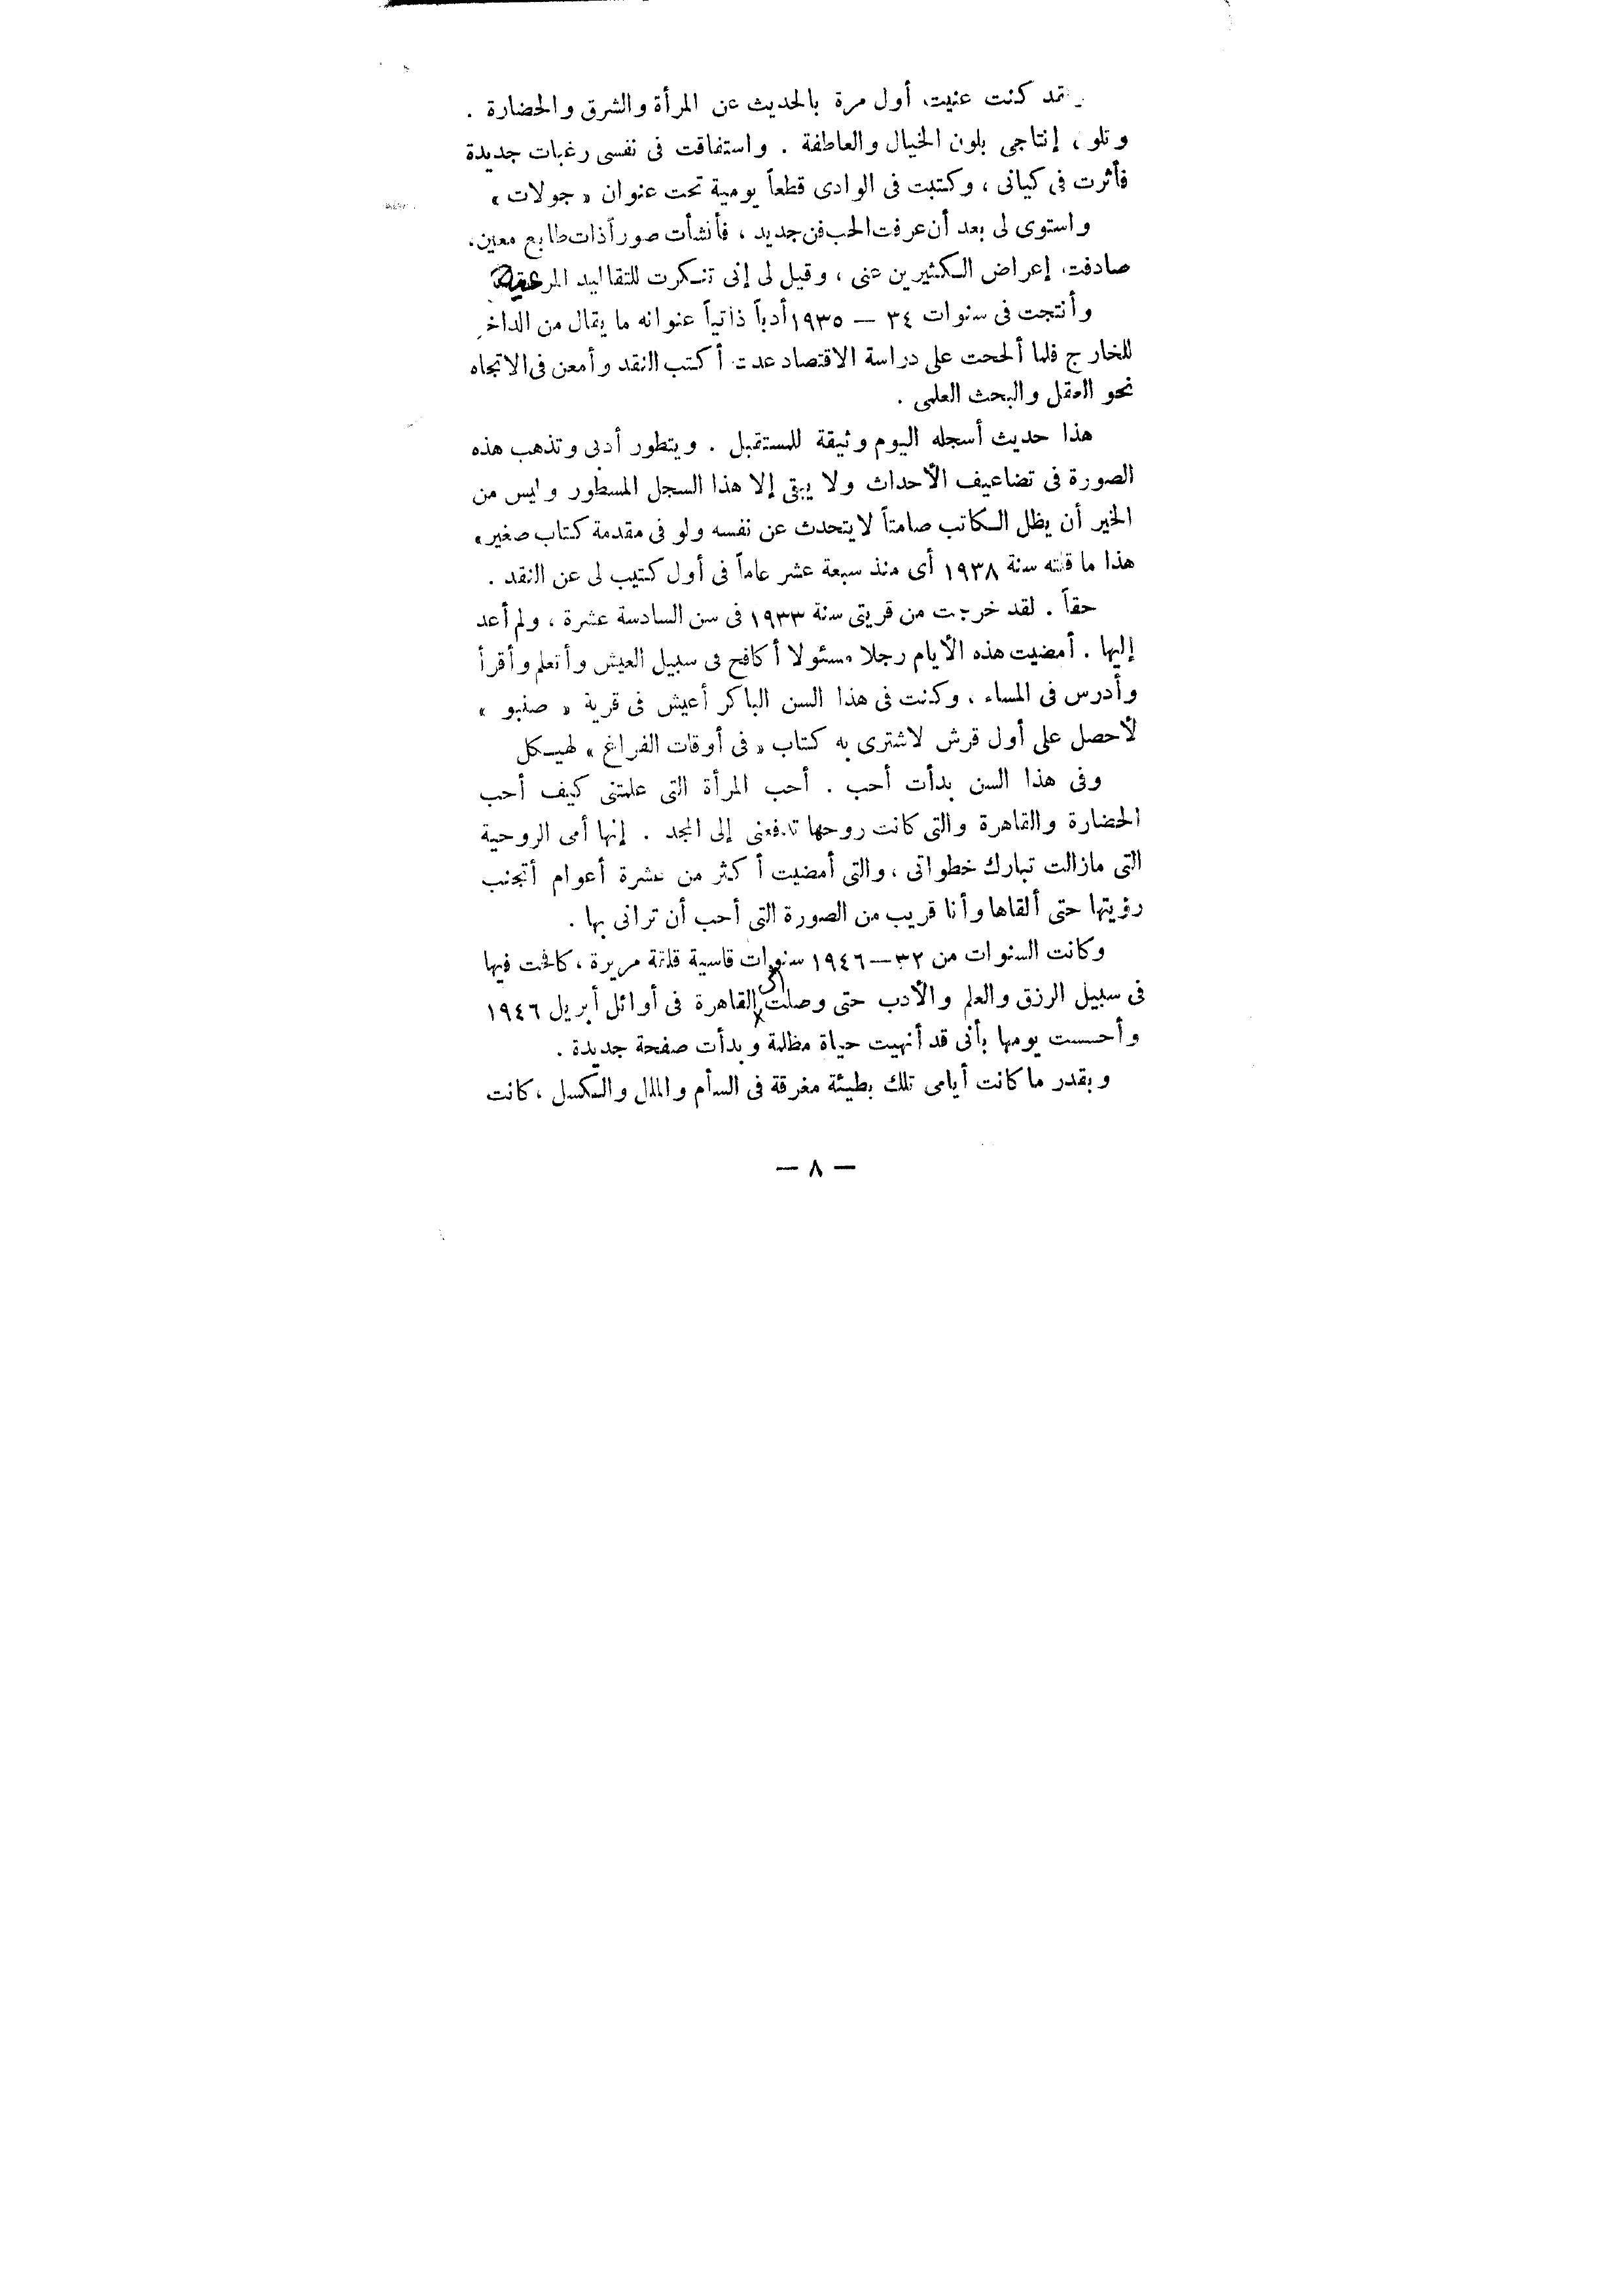 كنت عنيت أول مرة بالحديث عن المرأة والشرق والحضارة .
وتلو إنتاجى بلون الخيال والعاطفة . واستفاقت فى نفسى رغبات جديدة
فأثرت فى كيانى ، وكتبت فى الوادى قطعاً يومية تحت عنوان « جولات »
واستوى لى بعد أن عرفت الحب فن جديد ، فأنشأت صوراً ذات طابع معين ،
صادفت إعراض الكثيرين عنى ، وقيل لى إنى تنكرت للتقاليد المرعية
وأنتجت فى سنوات ٣٤ — ١٩٣٥ أدباً ذاتياً عنوانه ما يقال من الداخ
للخارج فلما ألححت على دراسة الاقتصاد عدت أكتب النقد وأمعن فى الاتجاه
نحو العقل والبحث العلمى .
هذا حديث أسجله اليوم وثيقة للمستقبل . ويتطور أدبى وتذهب هذه
الصورة فى تضاعيف الأحداث ولا يبقى إلا هذا السجل المسطور وليس من
الخير أن يظل الكاتب صامتاً لا يتحدث عن نفسه ولو فى مقدمة كتاب صغير »
هذا ما قلته سنة ١٩٣٨ أى منذ سبعة عشر عاماً فى أول كتيب لى عن النقد .
حقاً . لقد خرجت من قريتى سنة ١٩٣٣ فى سن السادسة عشرة ، ولم أعد
إليها . أمضيت هذه الأيام رجلا مسئولا أكافح فى سبيل العيش وأتعلم وأقرأ
وأدرس فى المساء ، وكنت فى هذا السن الباكر أعيش فى قرية « صنبو »
لأحصل على أول قرش لاشترى به كتاب « فى أوقات الفراغ » لهيكل
وفى هذا السن بدأت أحب . أحب المرأة التى علمتنى كيف أحب
الحضارة والقاهرة والتى كانت روحها تدفعنى إلى المجد . إنها أمى الروحية
التى مازالت تبارك خطواتى ، والتى أمضيت أكثر من عشرة أعوام أتجنب
رؤيتها حتى ألقاها وأنا قريب من الصورة التى أحب أن ترانى بها .
وكانت السنوات من ٣٢—١٩٤٦ سنوات قاسية قلقة مريرة ، كافحت فيها
فى سبيل الرزق والعلم والأدب حتى وصلت إلى القاهرة فى أوائل أبريل ١٩٤٦
وأحسست يومها بأنى قد أنهيت حياة مظلمة وبدأت صفحة جديدة .
وبقدر ما كانت أيامى تلك بطيئة مغرقة فى السأم والملل والكسل ، كانت
— ٨ —